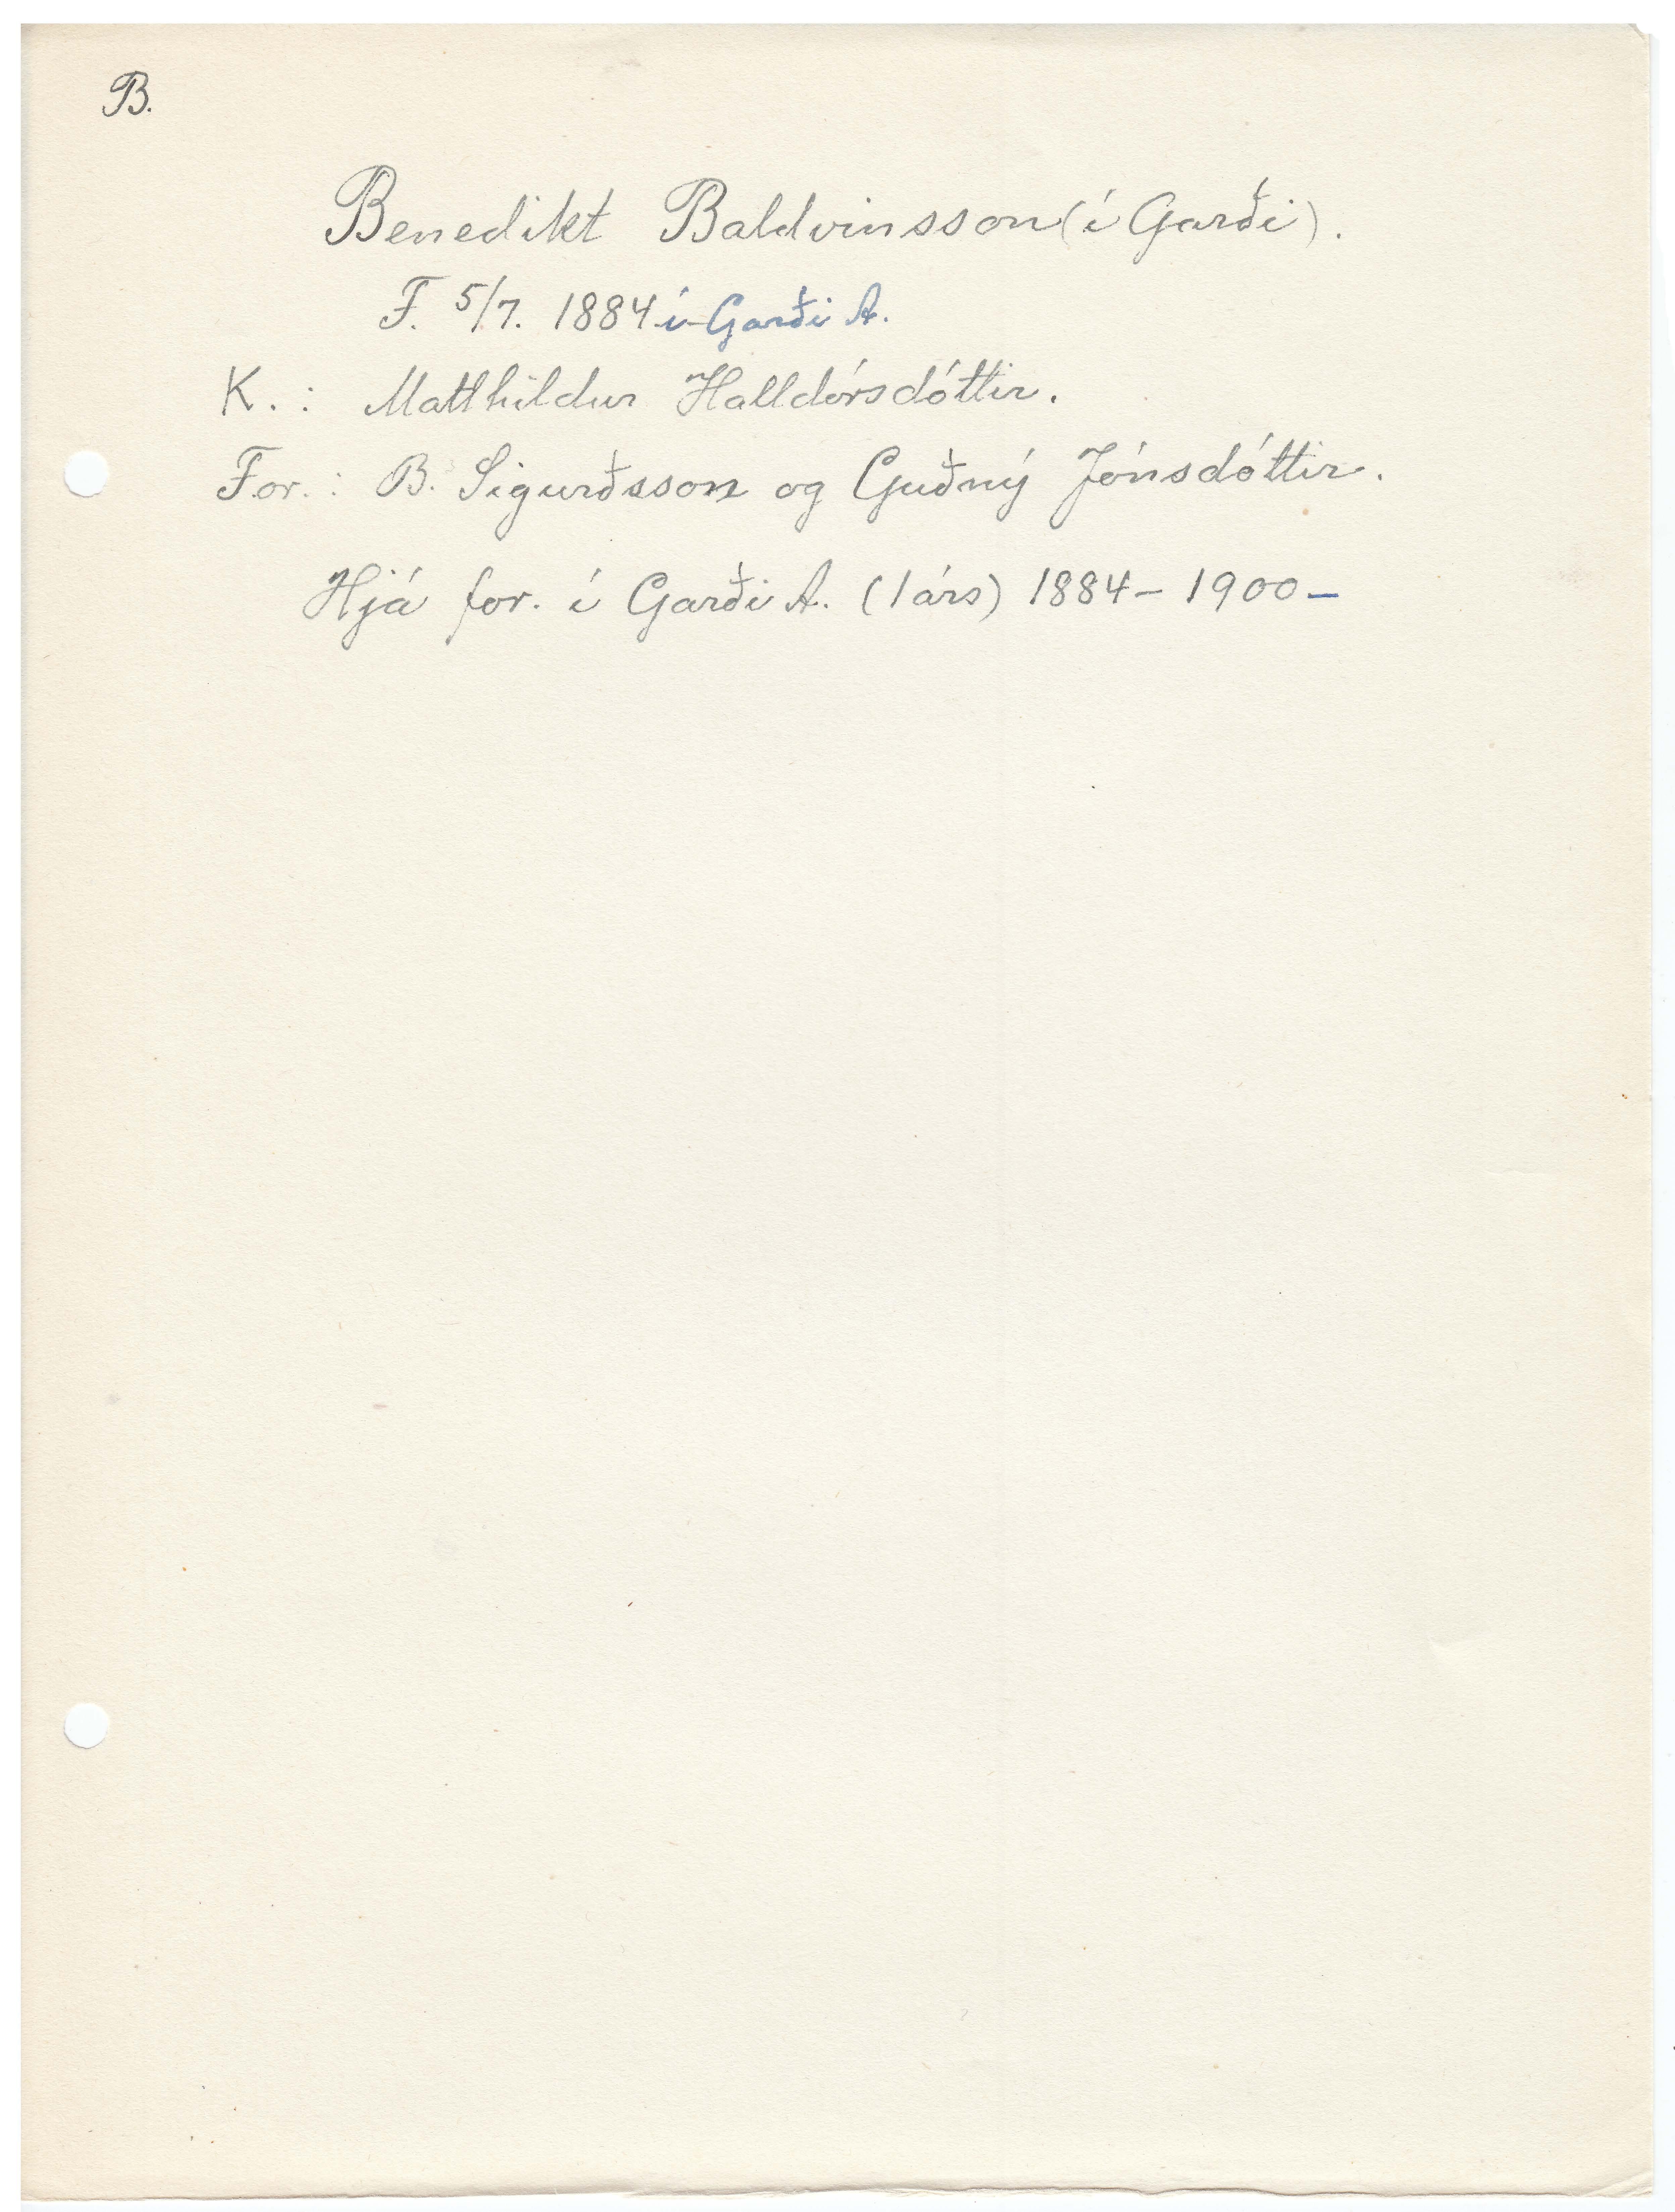 B.
Benedikt Baldvinsson (í Garði).
F. 5/7. 1884 í Garði A.
K. : Matthildur Halldórsdóttir.
For. : B. Sigurðsson og Guðný Jónsdóttir.
Hjá for. í Garði A. (1 árs) 1884 - 1900 -